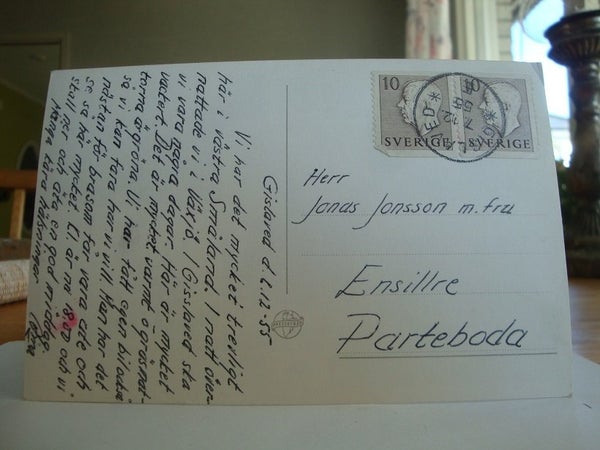 Gislaved d. 2.12-55
Vi har det mycket trevligt
här i västra Småland. I natt över-
nattade vi i Växjö. I Gislaved ska
vi vara några dagar. Här är mycket
vackert. Det är mycket varmt o gräsmat-
torna är gröna. Vi har fått egen bil också
så vi kan fara hur vi vill. Man har det
nästan för bra som får vara ute och
se så här mycket. Kl. är nu och vi
skall ner och äta en god middag.
Många kära hälsningar
10
SVERIGE
10
SVERIGE
Herr
Jonas Jonsson m. fru
Ensillre
Parteboda